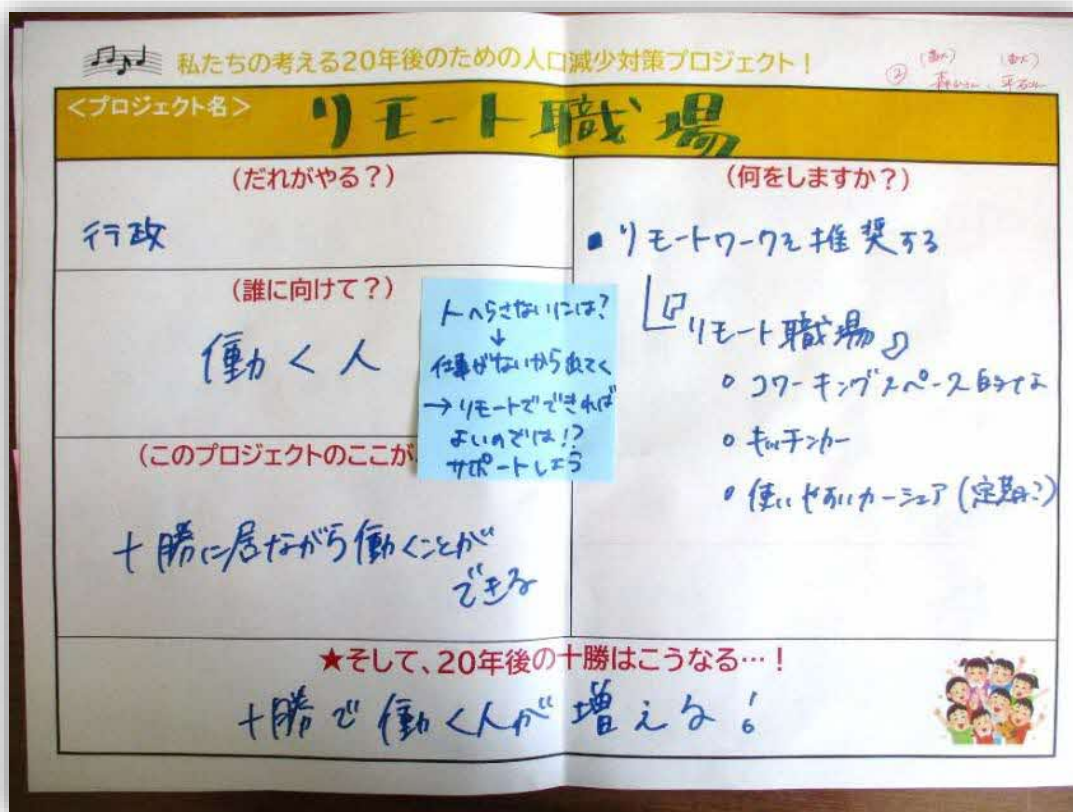 私たちの考える20年後のための人口減少対策プロジェクト!
②
<プロジェクト名>
リモート職場
(だれがやる?)
行政
(誰に向けて?)
働く人
(このプロジェクトのここが
十勝に居ながら働くことが
できる
人へらさないには?
↓
仕事がないから出てく
→リモートでできれば
よいのでは!?
サポートしよう
(何をしますか?)
■リモートワークを推奨する
『リモート職場』
○コワーキングスペース
○キッチンカー
○使いやすいカーシェア(定期?)
★そして、20年後の十勝はこうなる…!
十勝で働く人が増える!